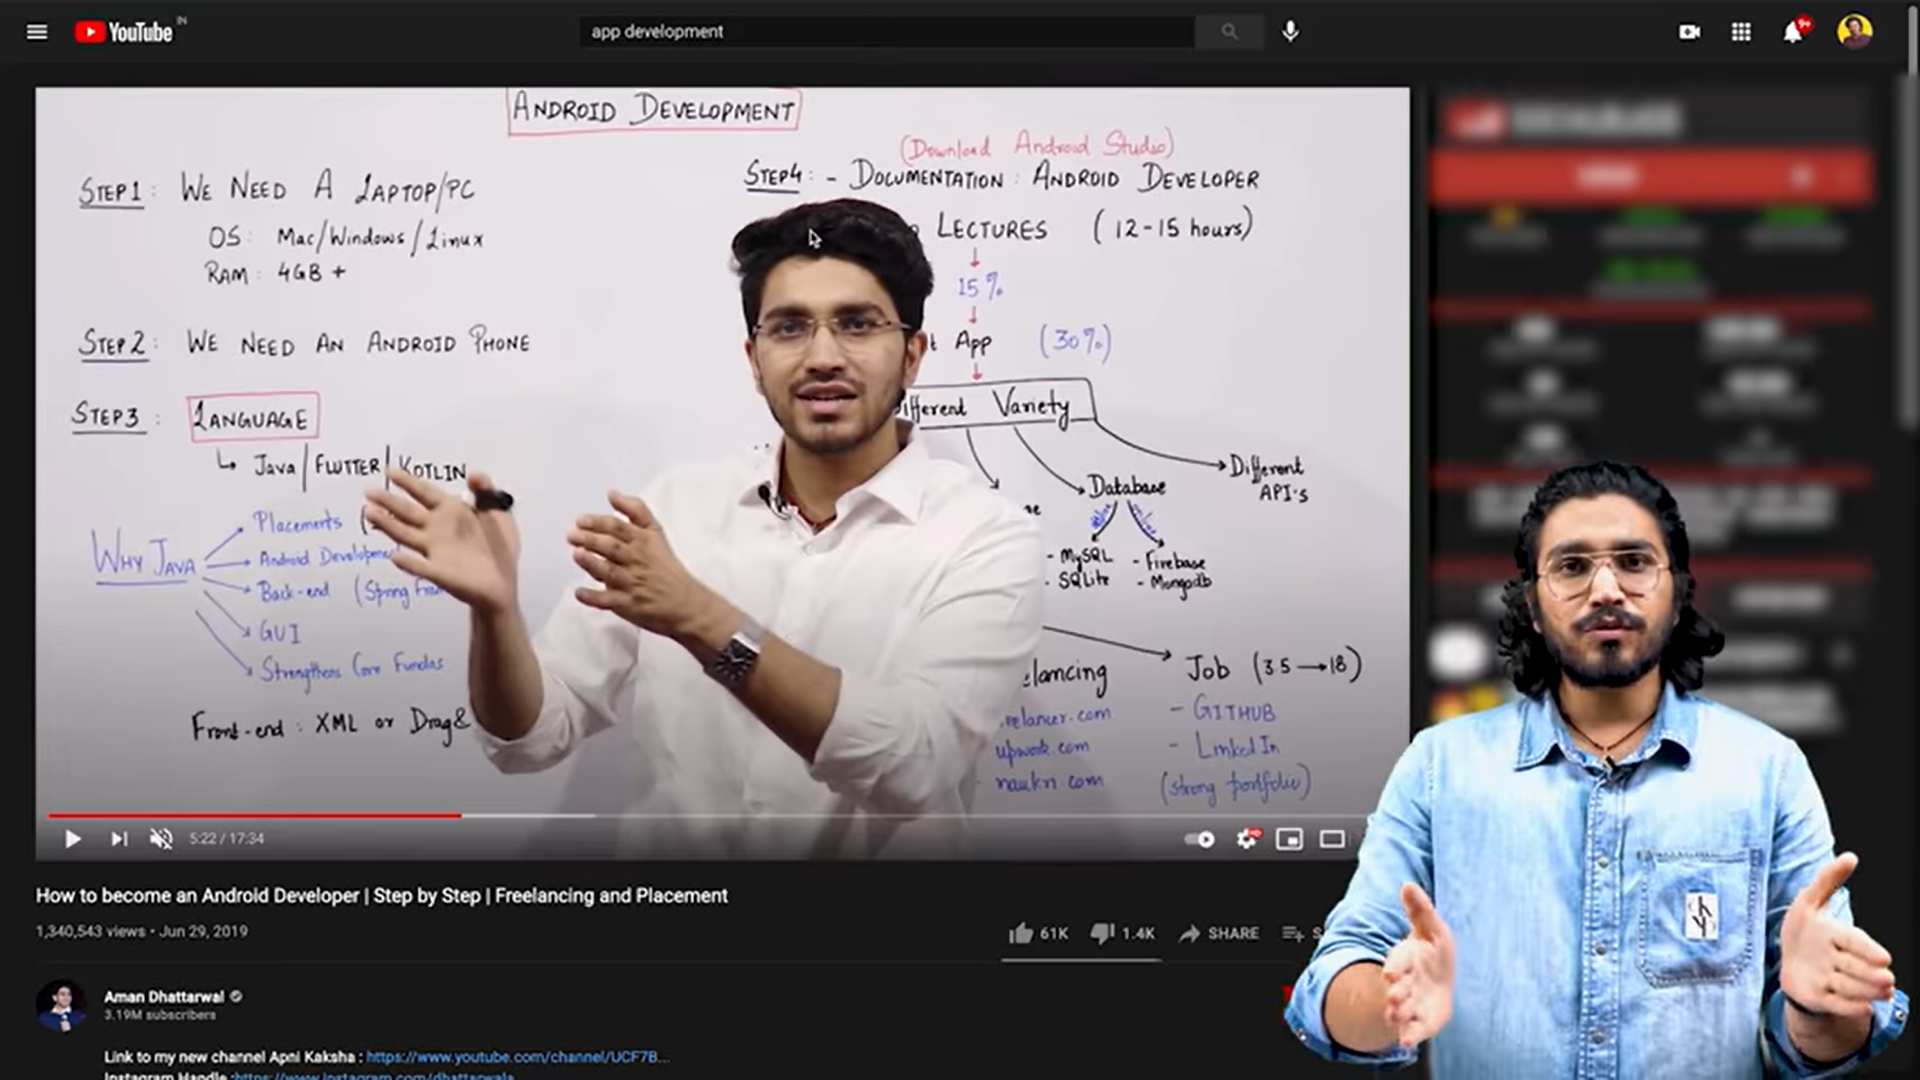 YouTube IN
app development
9+
ANDROID DEVELOPMENT
STEP1: WE NEED A LAPTOP/PC
OS: Mac/Windows/Linux
RAM: 4GB +
STEP2: WE NEED AN ANDROID PHONE
STEP3: LANGUAGE
Java/FLUTTER/KOTLIN
WHY JAVA
Placements
Android Development
Back-end (Spring
GUI
Strengthens Core Fundas
Front-end: XML or Drag&
(Download Android Studio)
STEP4: - DOCUMENTATION: ANDROID DEVELOPER
LECTURES (12-15 hours)
15%
App (30%)
Different Variety
Database
Different
API's
- MySQL
- SQLite
- Firebase
- Mongodb
elancing
Job (3.5→18)
reelancer.com
- GITHUB
upwork.com
- LinkedIn
naukri.com
(strong portfolio)
5:22 / 17:34
How to become an Android Developer | Step by Step | Freelancing and Placement
1,340,543 views • Jun 29, 2019
61K
1.4K
SHARE
S
Aman Dhattarwal
3.19M subscribers
Link to my new channel Apni Kaksha : https://www.youtube.com/channel/UCF7B...
Instagram Handle :https://www.instagram.com/dhattarwala